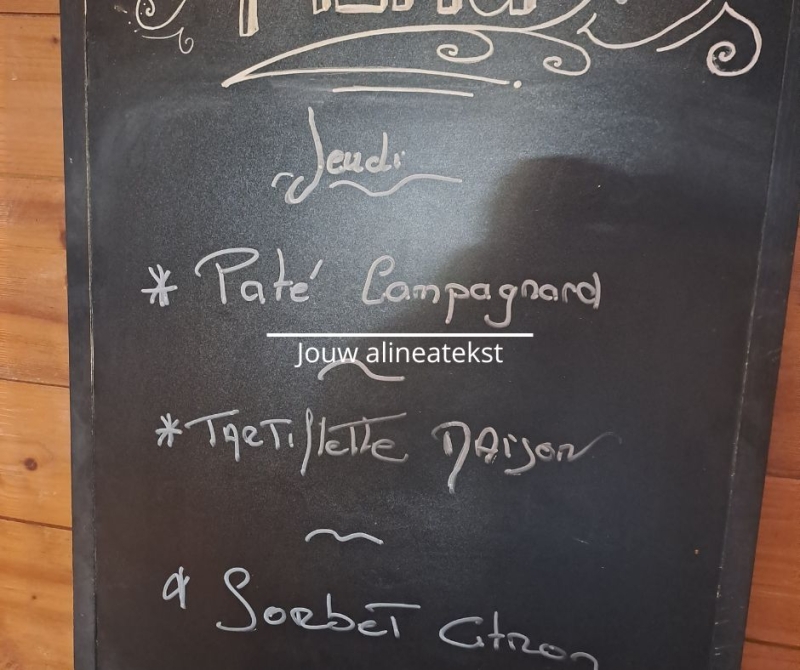 Menu
Jeudi
* Paté Campagnard
Jouw alineatekst
* Tartiflette Maison
* Sorbet Citron